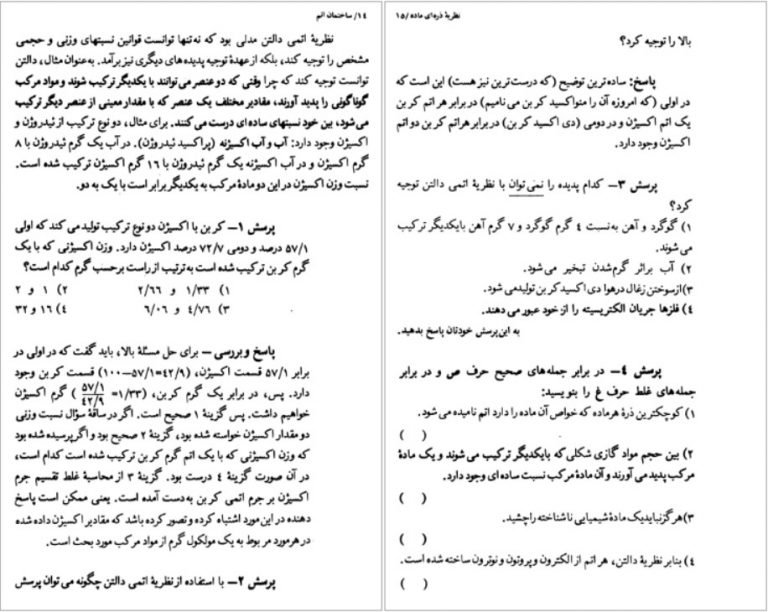 ۱۴/ ساختمان اتم
نظریهٔ اتمی دالتن مدلی بود که نه‌تنها توانست قوانین نسبتهای وزنی و حجمی
مشخص را توجیه کند، بلکه از عهدهٔ توجیه پدیده‌های دیگری نیز برآمد. به‌عنوان مثال، دالتن
توانست توجیه کند که چرا وقتی که دو عنصر می‌توانند با یکدیگر ترکیب شوند و مواد مرکب
گوناگونی را پدید آورند، مقادیر مختلف یک عنصر که با مقدار معینی از عنصر دیگر ترکیب
می‌شود، بین خود نسبتهای ساده‌ای درست می‌کنند. برای مثال، دو نوع ترکیب از ئیدروژن و
اکسیژن وجود دارد: آب و آب اکسیژنه (پراکسید ئیدروژن). در آب یک گرم ئیدروژن با ۸
گرم اکسیژن و در آب اکسیژنه یک گرم ئیدروژن با ۱۶ گرم اکسیژن ترکیب شده است.
نسبت وزن اکسیژن در این دو مادهٔ مرکب به یکدیگر برابر است با یک به دو.
پرسش ۱– کربن با اکسیژن دو نوع ترکیب تولید می‌کند که اولی
۵۷/۱ درصد و دومی ۷۲/۷ درصد اکسیژن دارد. وزن اکسیژنی که با یک
گرم کربن ترکیب شده است به‌ترتیب از راست برحسب گرم کدام است؟
۱) ۱/۳۳ و ۲/۶۶ ۲) ۱ و ۲
۳) ۴/۷۶ و ۶/۰۶ ۴) ۱۶ و ۳۲
پاسخ و بررسی – برای حل مسئلهٔ بالا، باید گفت که در اولی در
برابر ۵۷/۱ قسمت اکسیژن، (۴۲/۹=۵۷/۱–۱۰۰) قسمت کربن وجود
دارد. پس، در برابر یک گرم کربن، (۱/۳۳= ۵۷/۱ / ۴۲/۹) گرم اکسیژن
خواهیم داشت. پس گزینهٔ ۱ صحیح است. اگر در ساقهٔ سؤال نسبت وزنی
دو مقدار اکسیژن خواسته شده بود، گزینهٔ ۲ صحیح بود و اگر پرسیده شده بود
که وزن اکسیژنی که با یک اتم گرم کربن ترکیب شده است کدام است،
در آن صورت گزینهٔ ۴ درست بود. گزینهٔ ۳ از محاسبهٔ غلط تقسیم جرم
اکسیژن بر جرم اتمی کربن به‌دست آمده است. یعنی ممکن است پاسخ
دهنده در این مورد اشتباه کرده و تصور کرده باشد که مقادیر اکسیژن داده شده
در هرمورد مربوط به یک مولکول گرم از مواد مرکب مورد بحث است.
پرسش ۲– با استفاده از نظریهٔ اتمی دالتن چگونه می‌توان پرسش
نظریهٔ ذره‌ای ماده /۱۵
بالا را توجیه کرد؟
پاسخ: ساده‌ترین توضیح (که درست‌ترین نیز هست) این است که
در اولی (که امروزه آن را منواکسید کربن می‌نامیم) در برابر هر اتم کربن
یک اتم اکسیژن و در دومی (دی اکسید کربن) در برابر هر اتم کربن دو اتم
اکسیژن وجود دارد.
پرسش ۳– کدام پدیده را نمی‌توان با نظریهٔ اتمی دالتن توجیه
کرد؟
۱) گوگرد و آهن به‌نسبت ۴ گرم گوگرد و ۷ گرم آهن بایکدیگر ترکیب
می‌شوند.
۲) آب براثر گرم‌شدن تبخیر می‌شود.
۳) ازسوختن زغال درهوا دی اکسید کربن تولیدمی شود.
۴) فلزها جریان الکتریسیته را از خود عبور می‌دهند.
به این پرسش خودتان پاسخ بدهید.
پرسش ۴– در برابر جمله‌های صحیح حرف ص و در برابر
جمله‌های غلط حرف غ را بنویسید:
۱) کوچکترین ذرهٔ هرماده که خواص آن ماده را دارد اتم نامیده می‌شود.
( )
۲) بین حجم مواد گازی شکلی که بایکدیگر ترکیب می‌شوند و یک مادهٔ
مرکب پدید می‌آورند و آن مادهٔ مرکب نسبت ساده‌ای وجود دارد.
( )
۳) هرگز نبایدیک مادهٔ شیمیایی ناشناخته راچشید.
( )
۴) بنابر نظریهٔ دالتن، هر اتم از الکترون و پروتون و نوترون ساخته شده است.
( )